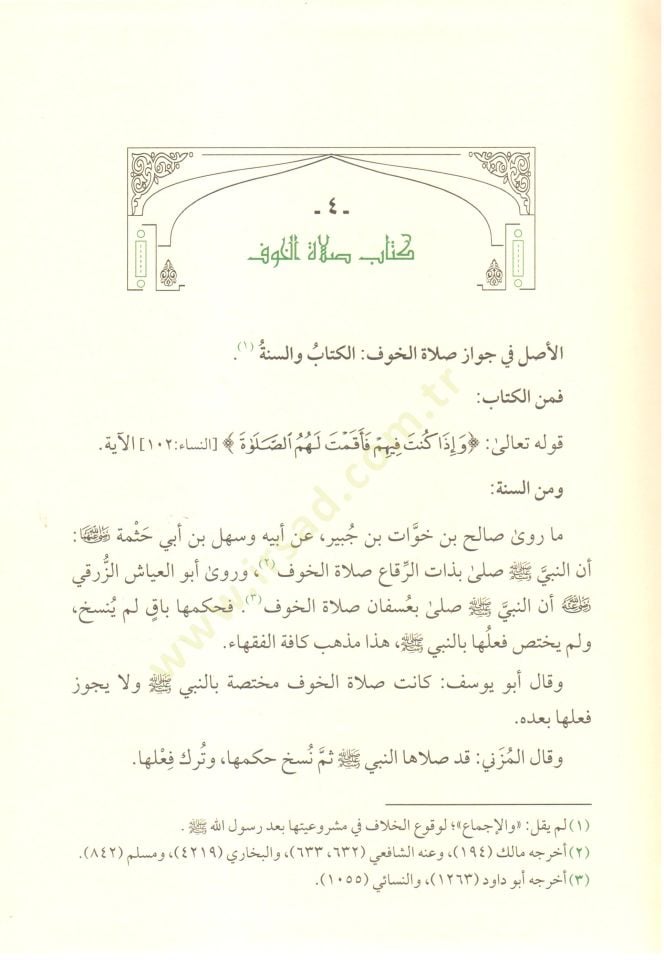 - ٤ -
كتاب صلاة الخوف
الأصل في جواز صلاة الخوف: الكتابُ والسنةُ (١).
فمن الكتاب:
قوله تعالىٰ: ﴿وَإِذَا كُنتَ فِيهِمْ فَأَقَمْتَ لَهُمُ ٱلصَّلَوٰةَ﴾ [النساء:١٠٢] الآية.
ومن السنة:
ما روىٰ صالح بن خوَّات بن جُبير، عن أبيه وسهل بن أبي حَثْمة رضي الله عنهما:
أن النبيَّ ﷺ صلىٰ بذات الرِّقاع صلاة الخوف(٢)، وروىٰ أبو العياش الزُّرقي
رضي الله عنه أن النبيَّ ﷺ صلىٰ بعُسفان صلاة الخوف(٣). فحكمها باقٍ لم يُنسخ،
ولم يختص فعلُها بالنبي ﷺ، هذا مذهب كافة الفقهاء.
وقال أبو يوسف: كانت صلاة الخوف مختصة بالنبي ﷺ ولا يجوز
فعلها بعده.
وقال المُزَني: قد صلاها النبي ﷺ ثمَّ نُسخ حكمها، وتُرك فِعْلها.
(١) لم يقل: «والإجماع»؛ لوقوع الخلاف في مشروعيتها بعد رسول الله ﷺ.
(٢) أخرجه مالك (١٩٤)، وعنه الشافعي (٦٣٢، ٦٣٣)، والبخاري (٤٢١٩)، ومسلم (٨٤٢).
(٣) أخرجه أبو داود (١٢٦٣)، والنسائي (١٠٥٥).
www.irsad.com.tr